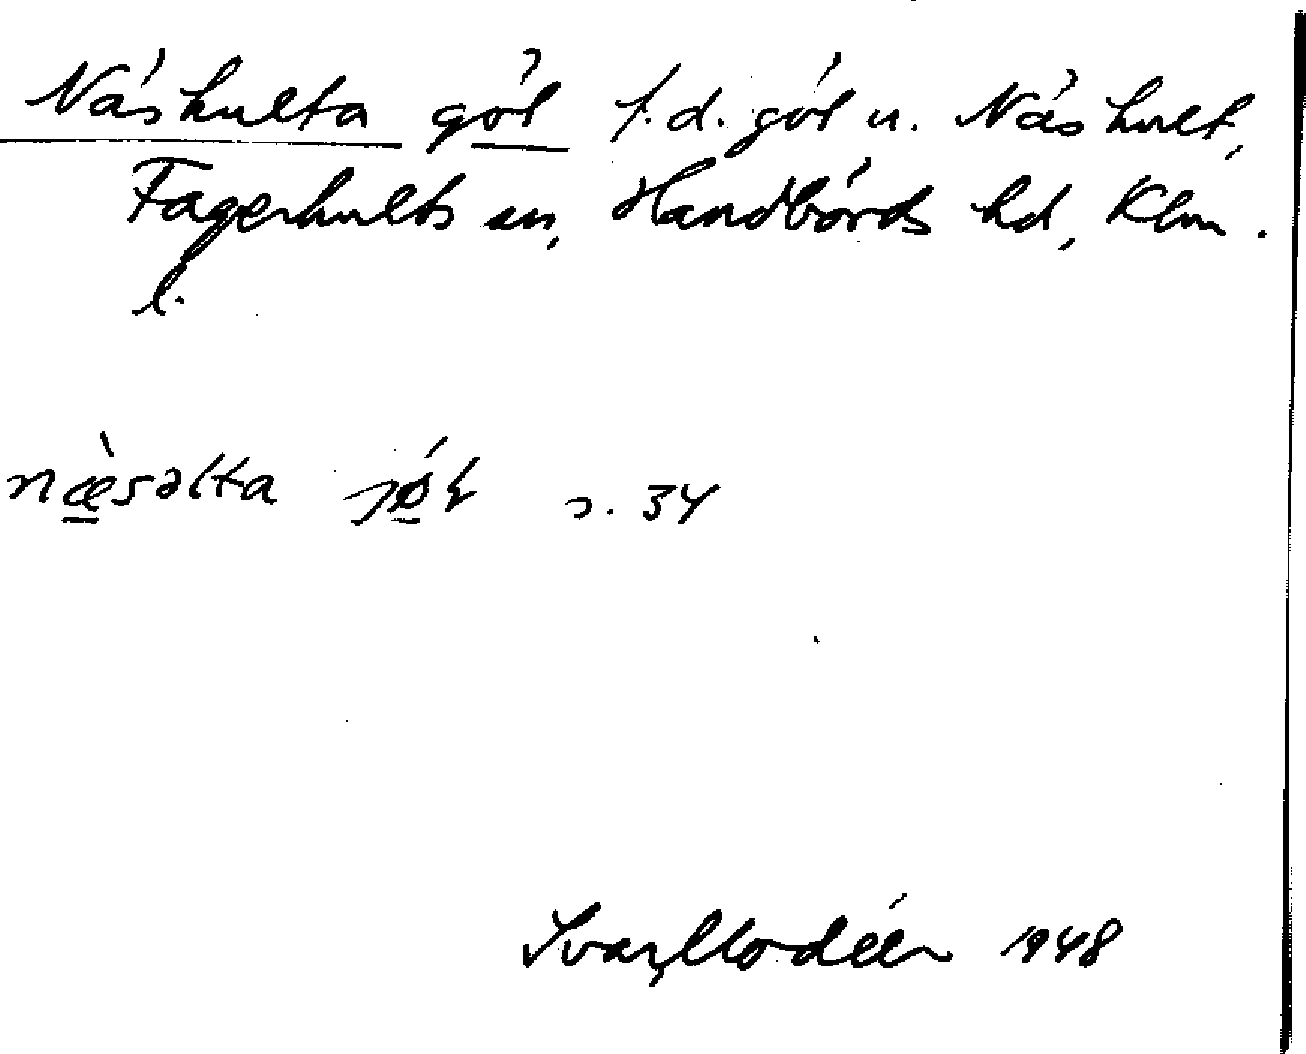 Näshulta göl f.d. göl u. Näshult,
Fagerhults sn, Handbörds hd, Klm.
l.
næ̀səlta jǿl s. 34
Ivar Modéer 1948